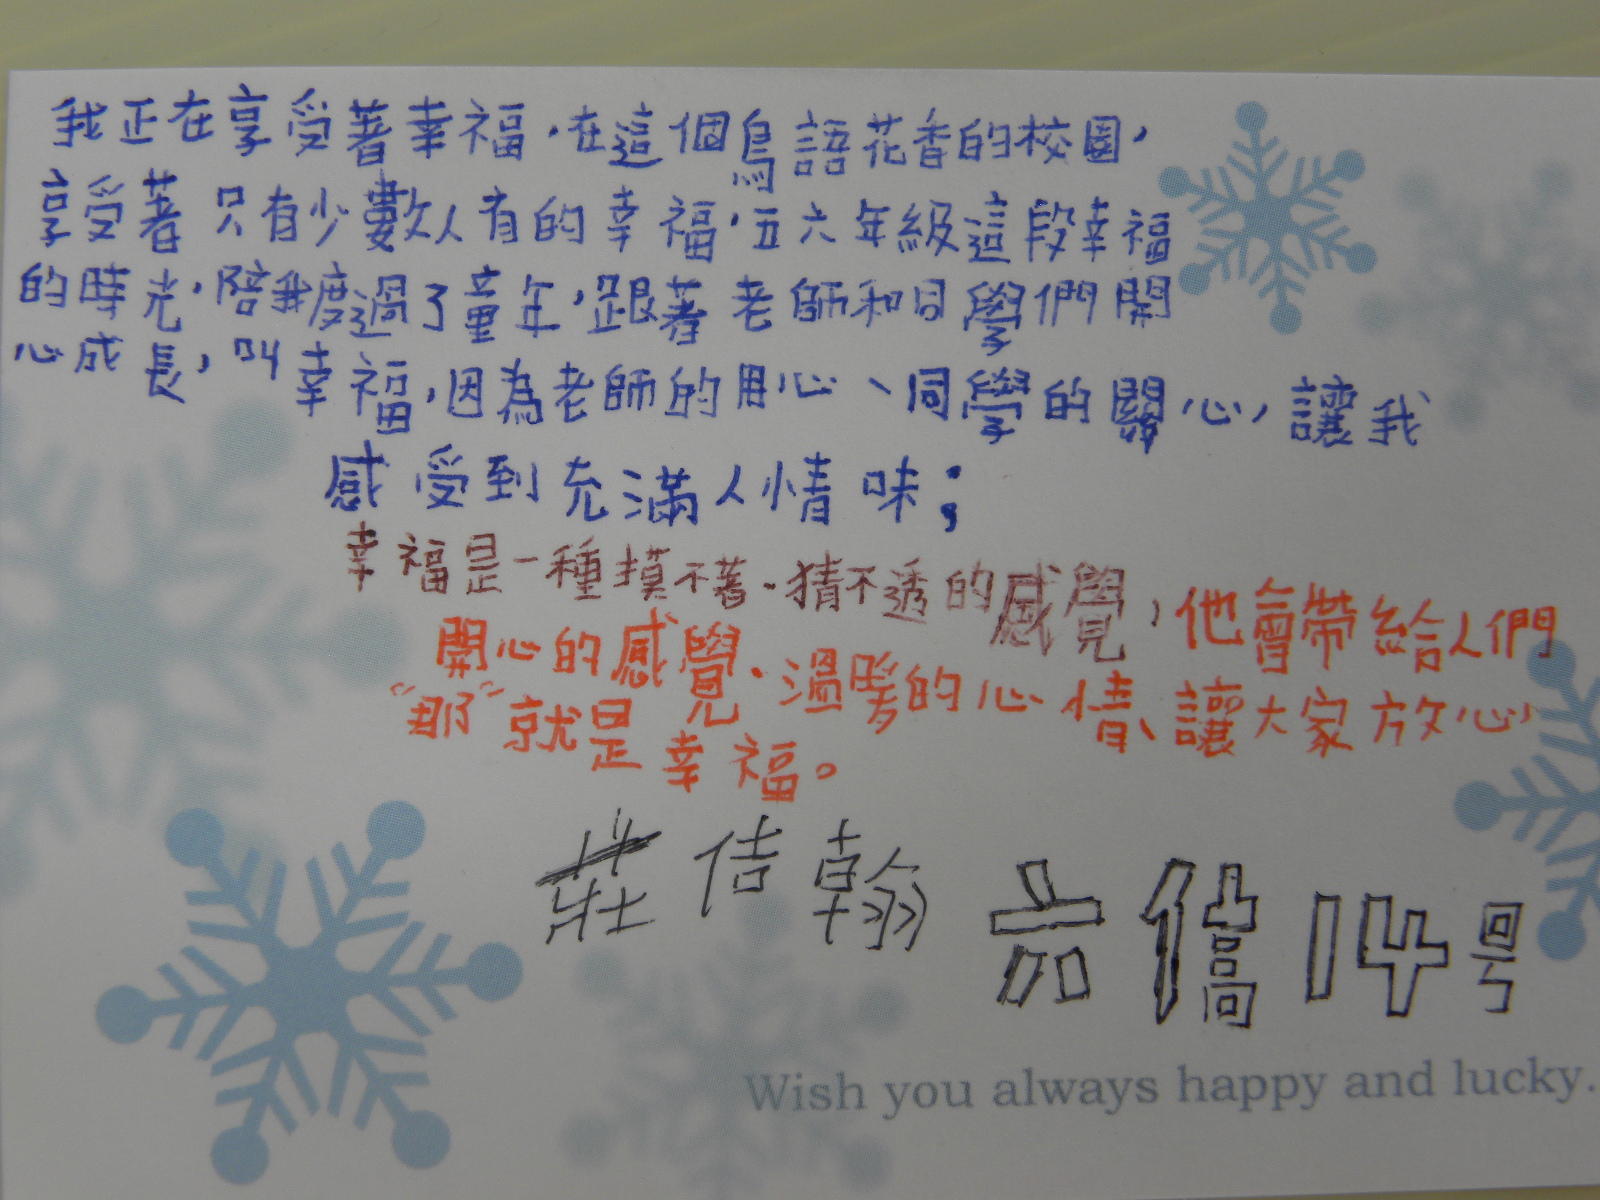 我正在享受著幸福,在這個鳥語花香的校園,
享受著只有少數人有的幸福,五六年級這段幸福
的時光,陪我度過了童年,跟著老師和同學們開
心成長,叫幸福,因為老師的用心、同學的關心,讓我
感受到充滿人情味;
幸福是一種摸不著、猜不透的感覺,他會帶給人們
開心的感覺、溫暖的心情、讓大家放心,
"那"就是幸福。
莊佶翰 六僖14号
Wish you always happy and lucky.